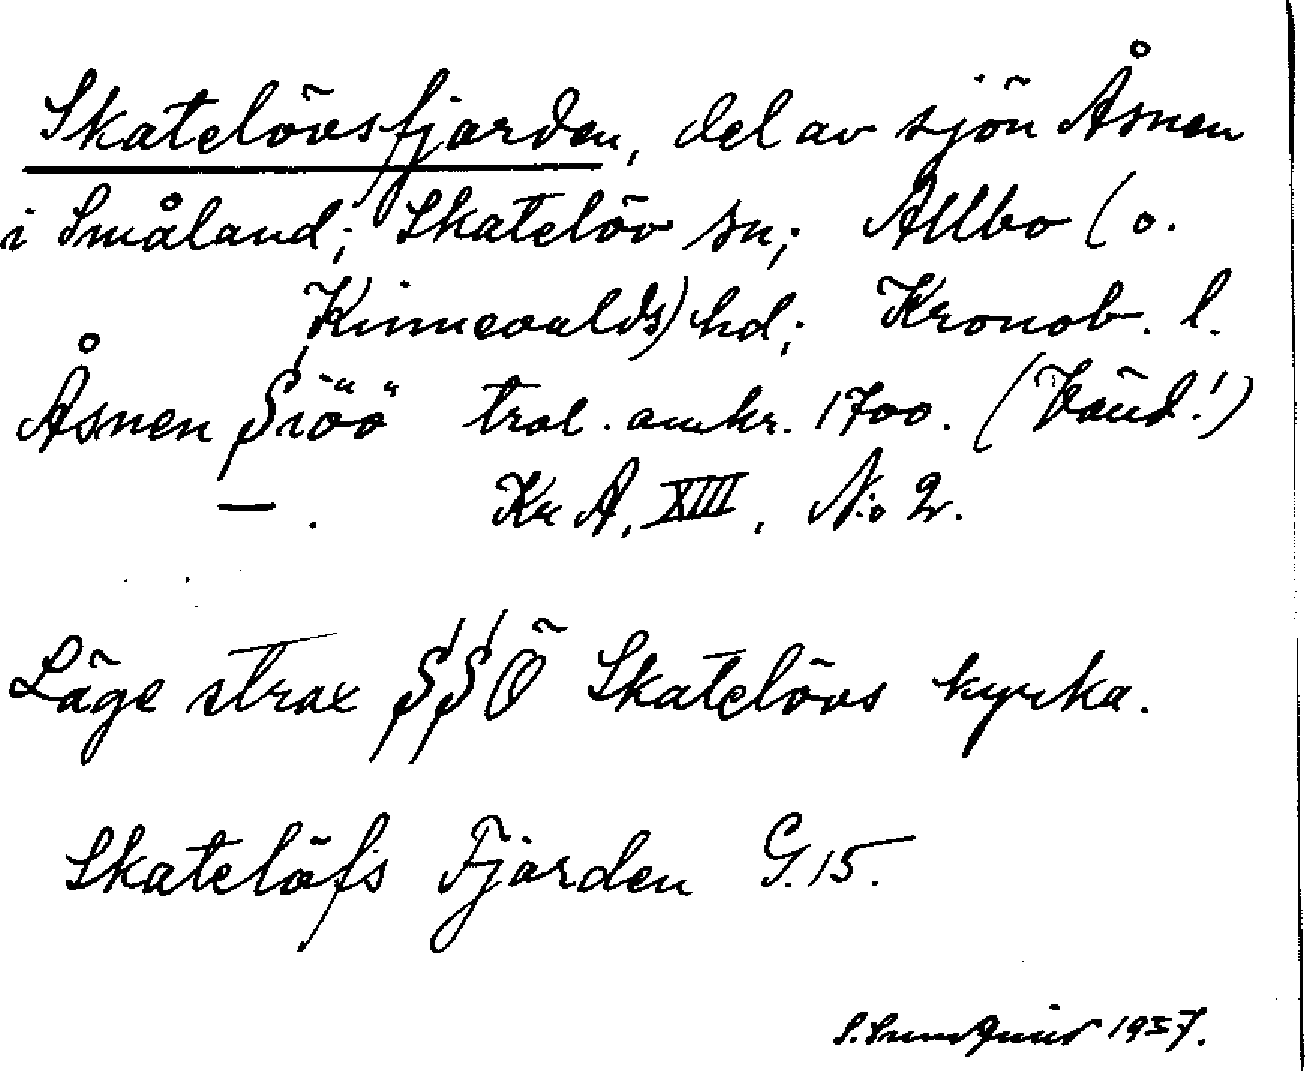 Skatelövsfjorden, del av sjön Åsnen
i Småland; Skatelöv sn; Allbo (o.
Kinnevalds) hd; Kronob. l.
Åsnen Siöö trol. omkr. 1700. (Vänd!)
— . Kr A. XIII. N:o 2.
Läge strax SSÖ Skatelövs kyrka.
Skatelöfs Fjorden G. 15.
1937.